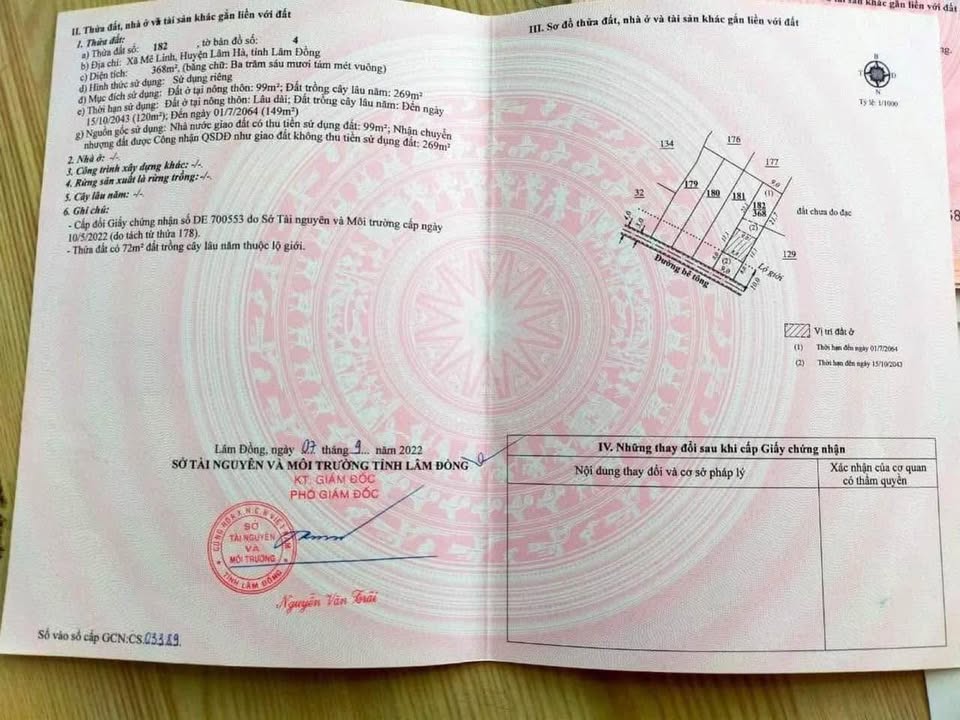 khác gắn liền với đất
II. Thửa đất, nhà ở và tài sản khác gắn liền với đất
1. Thửa đất:
a) Thửa đất số: 182 , tờ bản đồ số: 4
b) Địa chỉ: Xã Mê Linh, Huyện Lâm Hà, tỉnh Lâm Đồng
c) Diện tích: 368m², (bằng chữ: Ba trăm sáu mươi tám mét vuông)
d) Hình thức sử dụng: Sử dụng riêng
đ) Mục đích sử dụng: Đất ở tại nông thôn: 99m²; Đất trồng cây lâu năm: 269m²
e) Thời hạn sử dụng: Đất ở tại nông thôn: Lâu dài; Đất trồng cây lâu năm: Đến ngày
15/10/2043 (120m²); Đến ngày 01/7/2064 (149m²)
g) Nguồn gốc sử dụng: Nhà nước giao đất có thu tiền sử dụng đất: 99m²; Nhận chuyển
nhượng đất được Công nhận QSDĐ như giao đất không thu tiền sử dụng đất: 269m²
2. Nhà ở: -/-.
3. Công trình xây dựng khác: -/-.
4. Rừng sản xuất là rừng trồng: -/-.
5. Cây lâu năm: -/-.
6. Ghi chú:
- Cấp đổi Giấy chứng nhận số DE 700553 do Sở Tài nguyên và Môi trường cấp ngày
10/5/2022 (do tách từ thửa 178).
- Thửa đất có 72m² đất trồng cây lâu năm thuộc lộ giới.
Lâm Đồng, ngày 07 tháng 9 ... năm 2022
SỞ TÀI NGUYÊN VÀ MÔI TRƯỜNG TỈNH LÂM ĐỒNG
KT. GIÁM ĐỐC
PHÓ GIÁM ĐỐC
CỘNG HÒA X.H.C.N VIỆT NAM
SỞ
TÀI NGUYÊN
VÀ
MÔI TRƯỜNG
TỈNH LÂM ĐỒNG
Nguyễn Văn Trãi
Số vào sổ cấp GCN:CS.03389.
III. Sơ đồ thửa đất, nhà ở và tài sản khác gắn liền với đất
B
T
Đ
N
Tỷ lệ: 1/1000
134
176
177
32
179
180
181
182
368
9.0
(1)
(2)
(2)
9.0
10.0
129
đất chưa đo đạc
Lộ giới
Đường bê tông
Vị trí đất ở
(1) Thời hạn đến ngày 01/7/2064
(2) Thời hạn đến ngày 15/10/2043
IV. Những thay đổi sau khi cấp Giấy chứng nhận
Nội dung thay đổi và cơ sở pháp lý
Xác nhận của cơ quan
có thẩm quyền